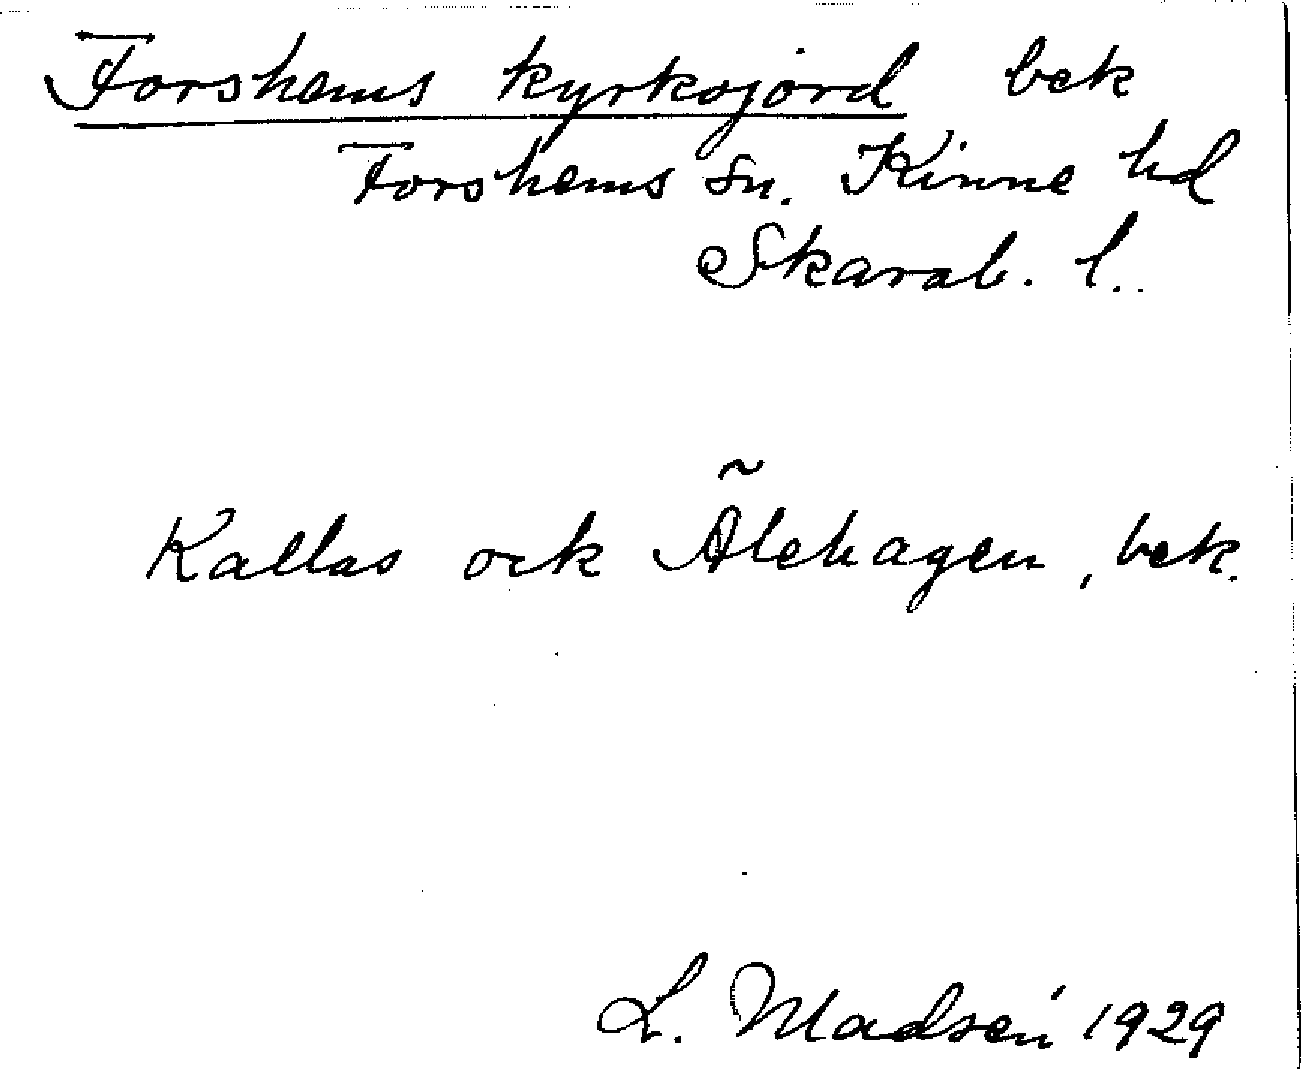 Forshems kyrkojord bek
Forshems sn. Kinne hd
Skarab. l..
Kallas ock Ãlehagen, bek.
L. Madsén 1929